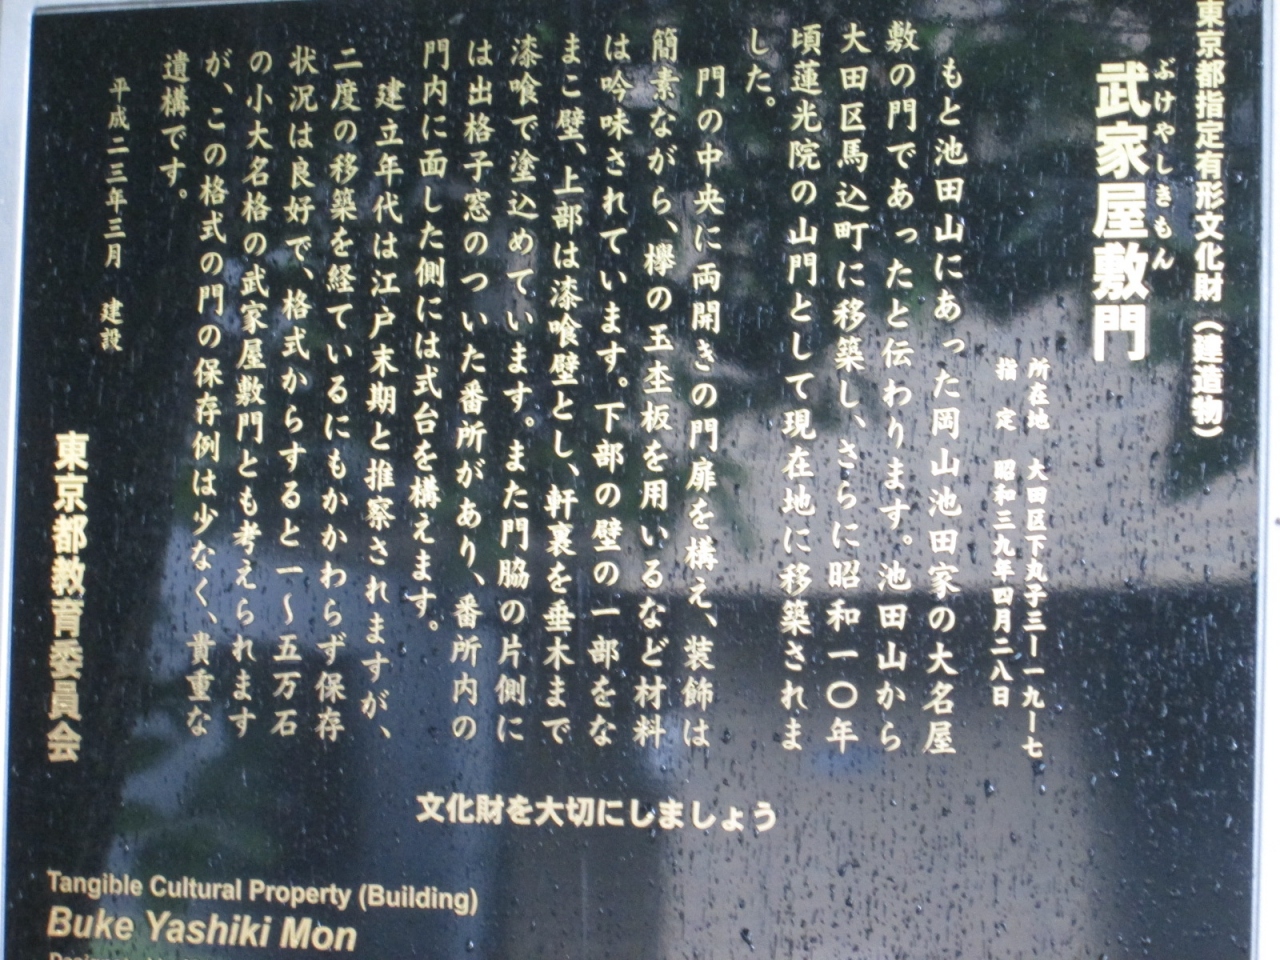 東京都指定有形文化財（建造物）
ぶけやしきもん
武家屋敷門
所在地　大田区下丸子三ー一九ー七
指　定　昭和三九年四月二八日
もと池田山にあった岡山池田家の大名屋
敷の門であったと伝わります。池田山から
大田区馬込町に移築し、さらに昭和一〇年
頃蓮光院の山門として現在地に移築されま
した。
門の中央に両開きの門扉を構え、装飾は
簡素ながら、欅の玉杢板を用いるなど材料
は吟味されています。下部の壁の一部をな
まこ壁、上部は漆喰壁とし、軒裏を垂木まで
漆喰で塗込めています。また門脇の片側に
は出格子窓のついた番所があり、番所内の
門内に面した側には式台を構えます。
建立年代は江戸末期と推察されますが、
二度の移築を経ているにもかかわらず保存
状況は良好で、格式からすると一～五万石
の小大名格の武家屋敷門とも考えられます
が、この格式の門の保存例は少なく、貴重な
遺構です。
平成二三年三月　建設
東京都教育委員会
文化財を大切にしましょう
Tangible Cultural Property (Building)
Buke Yashiki Mon